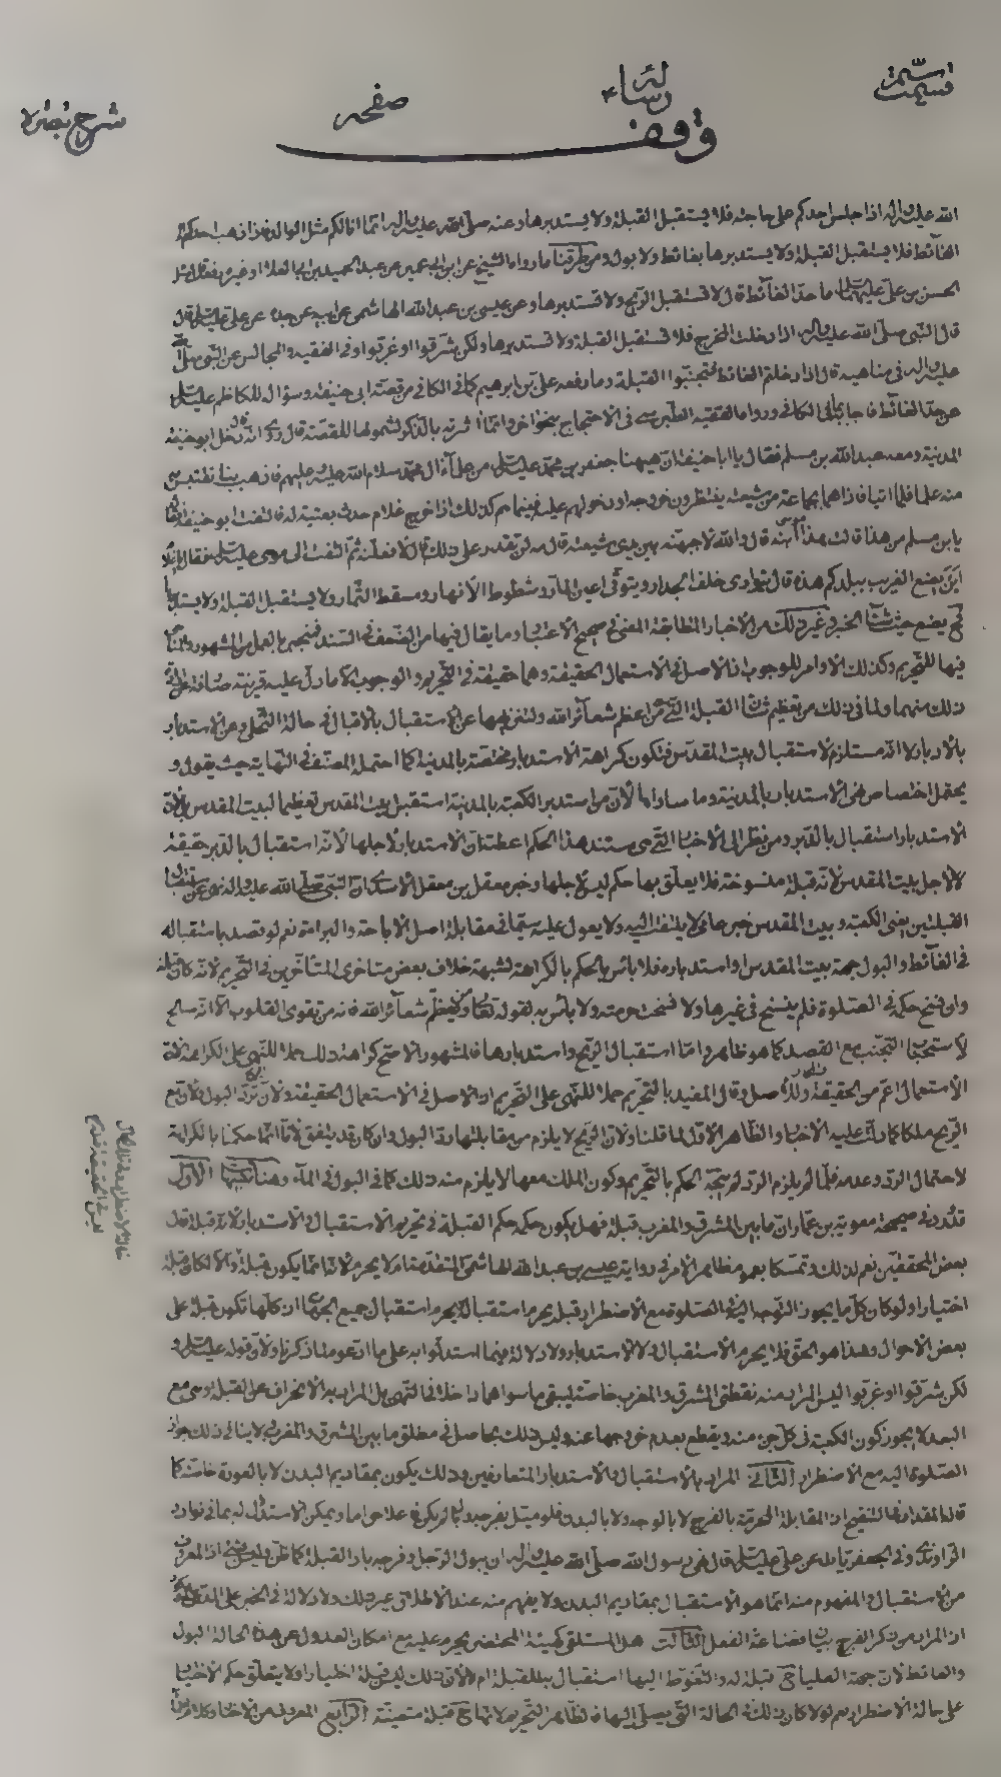 رسالة
صفحه
وقف
الله عليه وآله اذا جلس احدكم على حاجته فلا يستقبل القبلة ولا يستدبرها وعنه صلى الله عليه وآله انما انا لكم مثل الوالد فاذا ذهب احدكم الى
الغآئط فلا يستقبل القبلة ولا يستدبرها بغائط ولا بول ومن طرقنا ما رواه الشيخ عن ابن ابي عمير عن عبد الحميد بن ابي العلاء او غيره رفعه قال سئل
الحسن بن علي عليهما السلام ما حدّ الغآئط قال لا تستقبل الريح ولا تستدبرها وعن عيسى بن عبد الله الهاشمى عن ابيه عن جده عن على عليه السلام قال
قال النبى صلى الله عليه وآله اذا دخلت المخرج فلا تستقبل القبلة ولا تستدبرها ولكن شرّقوا او غرّبوا وفى الفقيه والمجالس عن النبى صلى الله
عليه وآله فى مناهيه قال اذا دخلتم الغائط فتجنبوا القبلة وما رفعه على بن ابرهيم كما فى الكافى من قصة ابى حنيفة وسؤاله للكاظم عليه السلام
عن حدّ الغآئط فاجابه الكافى ورواها الفقيه الطبرسى فى الاحتجاج بنحو اخر وانما اثرته بالذكر لشمولها للقصة قال روى انه دخل ابو حنيفة
المدينة ومعه عبد الله بن مسلم فقال يا ابا حنيفة ان هيهنا جعفر بن محمد عليه السلام من علمآء آل محمد سلام الله عليه وعليهم فاذهب بنا نقتبس
منه علما فلما اتيا فاذا هما بجماعة من شيعته ينتظرون خروجه او دخولهم عليه فبينما هم كذلك اذ خرج غلام حدث فالتفت ابو حنيفة فقال
يا ابن مسلم من هذا قال هذا موسى ابنه قال والله لاجبهنه بين يدى شيعته قال مه لن تقدر على ذلك قال لافعلنه ثم التفت الى موسى عليه السلام فقال يا غلام
اين يضع الغريب ببلدكم هذه قال يتوارى خلف الجدار ويتوقى اعين المآر وشطوط الانهار ومسقط الثمار ولا يستقبل القبلة ولا يستدبرها
ثم يضع حيث شآء الخبر وغير ذلك من الاخبار المطابقة المعنى فى صحيح الاعتبار وما يقال فيها من الضعف فى السند فمنجبر بالعمل من المشهور
فيها للتحريم وكذلك الاوامر للوجوب اذ الاصل فى الاستعمال الحقيقة وهما حقيقة فى التحريم والوجوب الا ما دل عليه قرينة
ذلك منهما ولما فى ذلك من تعظيم شأن القبلة التى هى من اعظم شعآئر الله ولتنزيهها عن الاستقبال بالاقبال فى حالة التخلى وعن الاستدبار
بالادبار لا انه مستلزم لاستقبال بيت المقدس فتكون كراهة الاستدبار مختصة بالمدينة كما احتمله المصنف فى النهاية حيث يقول و
يحتمل اختصاص نهى الاستدبار بالمدينة وما ساواها لان من استدبر الكعبة بالمدينة استقبل بيت المقدس تعظيما لبيت المقدس لان
الاستدبار استقبال بالدبر ومن نظر الى الاخبار التى هى مستند هذا الحكم اعطته ان الاستدبار لاجلها لانه استقبال بالدبر حقيقة
لا لاجل بيت المقدس لانه قبلة منسوخة فلا يعلق بها حكم ليس لاجلها وخبر معقل بن معقل الاسدى ان النبى صلى الله عليه وآله نهى عن استقبال
القبلتين يعنى الكعبة وبيت المقدس خبر عامى لا يلتفت اليه ولا يعول عليه سيما فى مقابلة اصل الاباحة والبراءة نعم لو قصد باستقباله
فى الغآئط والبول جهة بيت المقدس او استدباره فلا بأس بالحكم بالكراهة لشبهة خلاف بعض متاخرى المتأخرين فى التحريم لانه كان قبلة
وان نسخ حكمه فى الصلوة فلم ينسخ فى غيرها ولا نسخت حرمته ولا بأس به لقوله تعالى ومن يعظم شعآئر الله فانه من تقوى القلوب الا انه صالح
لاستحباب التجنب مع القصد كما هو ظاهر واما استقبال الريح واستدبارها فالمشهور الاصح كراهة ذلك حملا للنهى على الكراهة
الاستعمال اعم من الحقيقة وقال المفيد بالتحريم حملا للنهى على التحريم اذ الاصل فى الاستعمال الحقيقة ولان ترد البول ولان مع
الريح ملكا كما دلت عليه الاخبار والظاهر الاول لما قلنا ولان الريح لا يلزم من مقابلتها رد البول وان كان قد يتفق لانا انما حكمنا بالكراهة
لاحتمال الرد وعدمه فلما لم يلزم الرد لم يتجه الحكم بالتحريم وكون الملك معها لا يلزم منه ذلك كما فى البول فى المآء وهنا تنبيهات الاول
قد ورد فى صحيحة معوية بن عمار ان ما بين المشرق والمغرب قبلة فهل يكون حكمه حكم القبلة فى تحريم الاستقبال والاستدبار لانه قبلة قال
بعض المحققين نعم لذلك وتمسكا بعموم ظاهر الامر فى رواية عيسى بن عبد الله الهاشمى المتقدمة لا يحرم لانه انما يكون قبلة والا لكان قبلة
اختيارا ولو كان كل ما يجوز التوجه اليه فى الصلوة مع الاضطرار قبلة يحرم استقباله لحرم استقبال جميع الجهات اذ كلها تكون قبلة على
بعض الاحوال وهذا هو الحق فلا يحرم الاستقبال ولا الاستدبار ولا دلالة فيما استدلوا به على ما ادعوه لما ذكرنا ولان قوله عليه السلام و
لكن شرقوا او غربوا ليس المراد منه نقطتى المشرق والمغرب خاصة ليبقى ما سواهما داخلا فى النهى بل المراد به الانحراف عن القبلة وهى مع
البعد لا يجوز كون الكعبة فى كل جزء منه ويقطع بعدم خروجها عنه وليس ذلك بحاصل فى مطلق ما بين المشرق والمغرب ولا ينافى ذلك جواز
الصلوة اليه مع الاضطرار الثانى المراد بالاستقبال والاستدبار المتعارفين وذلك يكون بمقاديم البدن لا بالعورة خاصة كما
قاله المقداد فى التنقيح ان المقابلة المحرمة بالفرج لا بالوجه ولا بالبدن فلو ميل بفرجه لم يكن فاعلا حراما ويمكن الاستدلال له بما فى نوادر
الراوندى وفى الجعفريات عن على عليه السلام قال نهى رسول الله صلى الله عليه وآله ان يبول الرجل وفرجه باد للقبلة اذ المعروف
من الاستقبال والمفهوم منه انما هو الاستقبال بمقاديم البدن ولا يفهم منه عند الاطلاق غير ذلك ولا دلالة فى الخبر على المدعى
اذ المراد من ذكر الفرج بيان فضاعة الفعل الثالث هل المستلقى كهيئة المحتضر يحرم عليه مع امكان العدول عن هذه الحالة البول
والغائط لان جهة العليا قبلة له والتغوط اليها استقبال به للقبلة ام لا لان ذلك ليس قبلة اختيارا ولا يتعلق حكم الاختيار
على حالة الاضطرار نعم لو لا كان ذلك فى الحالة التى يصلى اليها فالظاهر التحريم لانها قبلة متعينة الرابع المعروف من الاخبار وكلام